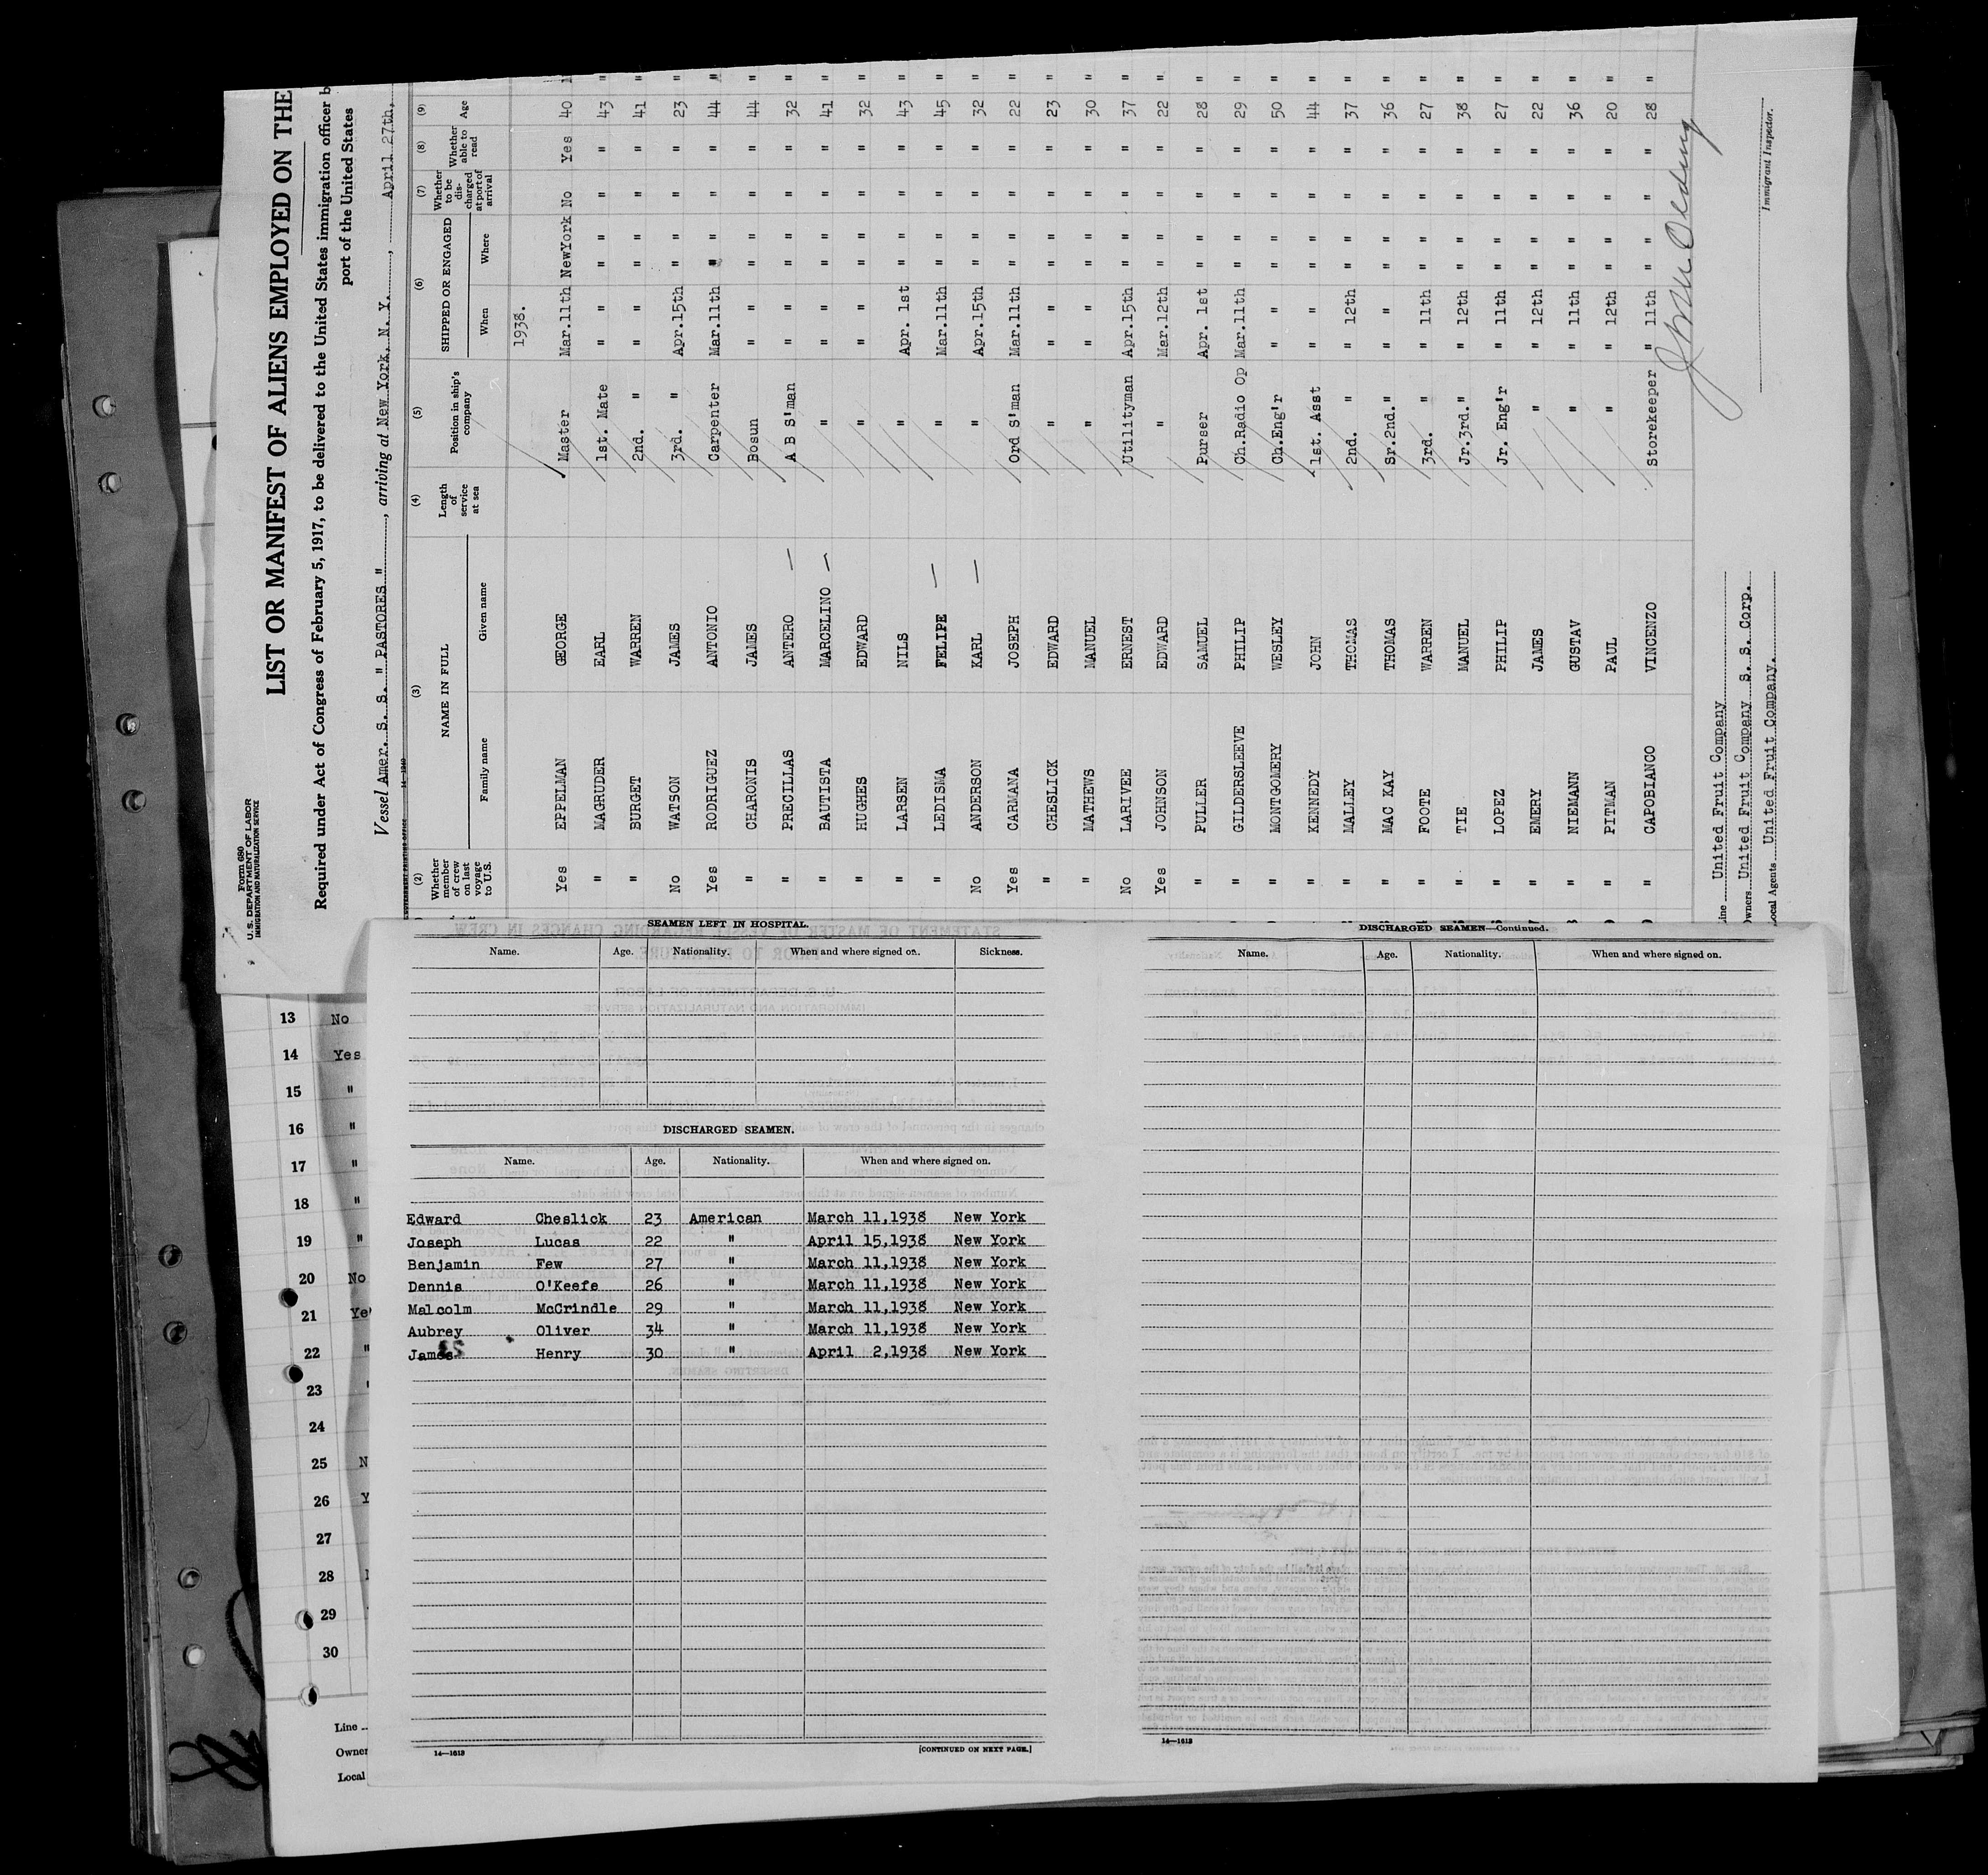 Form 680
U. S. DEPARTMENT OF LABOR
IMMIGRATION AND NATURALIZATION SERVICE
LIST OR MANIFEST OF ALIENS EMPLOYED ON THE
Required under Act of Congress of February 5, 1917, to be delivered to the United States immigration officer b
port of the United States
Vessel Amer. S. S. " PASTORES ", arriving at New York, N. Y., April 27th,
(2) (3) (4) (5) (6) (7) (8) (9)
Whether member of crew on last voyage to U.S. NAME IN FULL Family name Given name Length of service at sea Position in ship's company SHIPPED OR ENGAGED When Where Whether to be discharged at port of arrival Whether able to read Age
1938.
Yes EPPELMAN GEORGE Master Mar.11th NewYork No Yes 40
" MAGRUDER EARL 1st. Mate " " " " " 43 "
" BURGET WARREN 2nd. " " " " " " 41 "
No WATSON JAMES 3rd. " Apr.15th " " " " 23 "
Yes RODRIGUEZ ANTONIO Carpenter Mar.11th " " " " 44 "
" CHARONIS JAMES Bosun " " " " " 44 "
" PRECILLAS ANTERO — A B S'man " " " " " 32 "
" BAUTISTA MARCELINO — " " " " " " 41 "
" HUGHES EDWARD " " " " " " 32 "
" LARSEN NILS " Apr. 1st " " " " 43 "
" LEDISMA FELIPE — " Mar.11th " " " " 45 "
No ANDERSON KARL — " Apr.15th " " " " 32 "
Yes CARMANA JOSEPH Ord S'man Mar.11th " " " " 22 "
" CHESLICK EDWARD " " " " " " 23 "
" MATHEWS MANUEL " " " " " " 30 "
No LARIVEE ERNEST Utilityman Apr.15th " " " " 37 "
Yes JOHNSON EDWARD " Mar.12th " " " " 22 "
" PULLER SAMUEL Purser Apr. 1st " " " " 28 "
" GILDERSLEEVE PHILIP Ch.Radio Op Mar.11th " " " " 29 "
" MONTGOMERY WESLEY Ch.Eng'r " " " " " 50 "
" KENNEDY JOHN 1st. Asst " " " " " 44 "
" MALLEY THOMAS 2nd. " " 12th " " " " 37 "
" MAC KAY THOMAS Sr.2nd." " " " " " 36 "
" FOOTE WARREN 3rd. " " 11th " " " " 27 "
" TIE MANUEL Jr.3rd." " 12th " " " " 38 "
" LOPEZ PHILIP Jr. Eng'r " 11th " " " " 27 "
" EMERY JAMES " " 12th " " " " 22 "
" NIEMANN GUSTAV " " 11th " " " " 36 "
" PITMAN PAUL " " 12th " " " " 20 "
" CAPOBIANCO VINCENZO Storekeeper " 11th " " " " 28 "
ine United Fruit Company
wners United Fruit Company S. S. Corp.
ocal Agents United Fruit Company.
Immigrant Inspector.
13 No
14 Yes
15 "
16 "
17 "
18 "
19 "
20 No
21 Ye
22 "
23 "
24
25 N
26 Y
27
28
29
30
Line
Owner
Local
SEAMEN LEFT IN HOSPITAL.
Name. Age. Nationality. When and where signed on. Sickness.
DISCHARGED SEAMEN.
Name. Age. Nationality. When and where signed on.
Edward Cheslick 23 American March 11,1938 New York
Joseph Lucas 22 " April 15,1938 New York
Benjamin Few 27 " March 11,1938 New York
Dennis O'Keefe 26 " March 11,1938 New York
Malcolm McCrindle 29 " March 11,1938 New York
Aubrey Oliver 34 " March 11,1938 New York
James Henry 30 " April 2,1938 New York
14—1613
[CONTINUED ON NEXT PAGE.]
DISCHARGED SEAMEN—Continued.
Name. Age. Nationality. When and where signed on.
14—1613